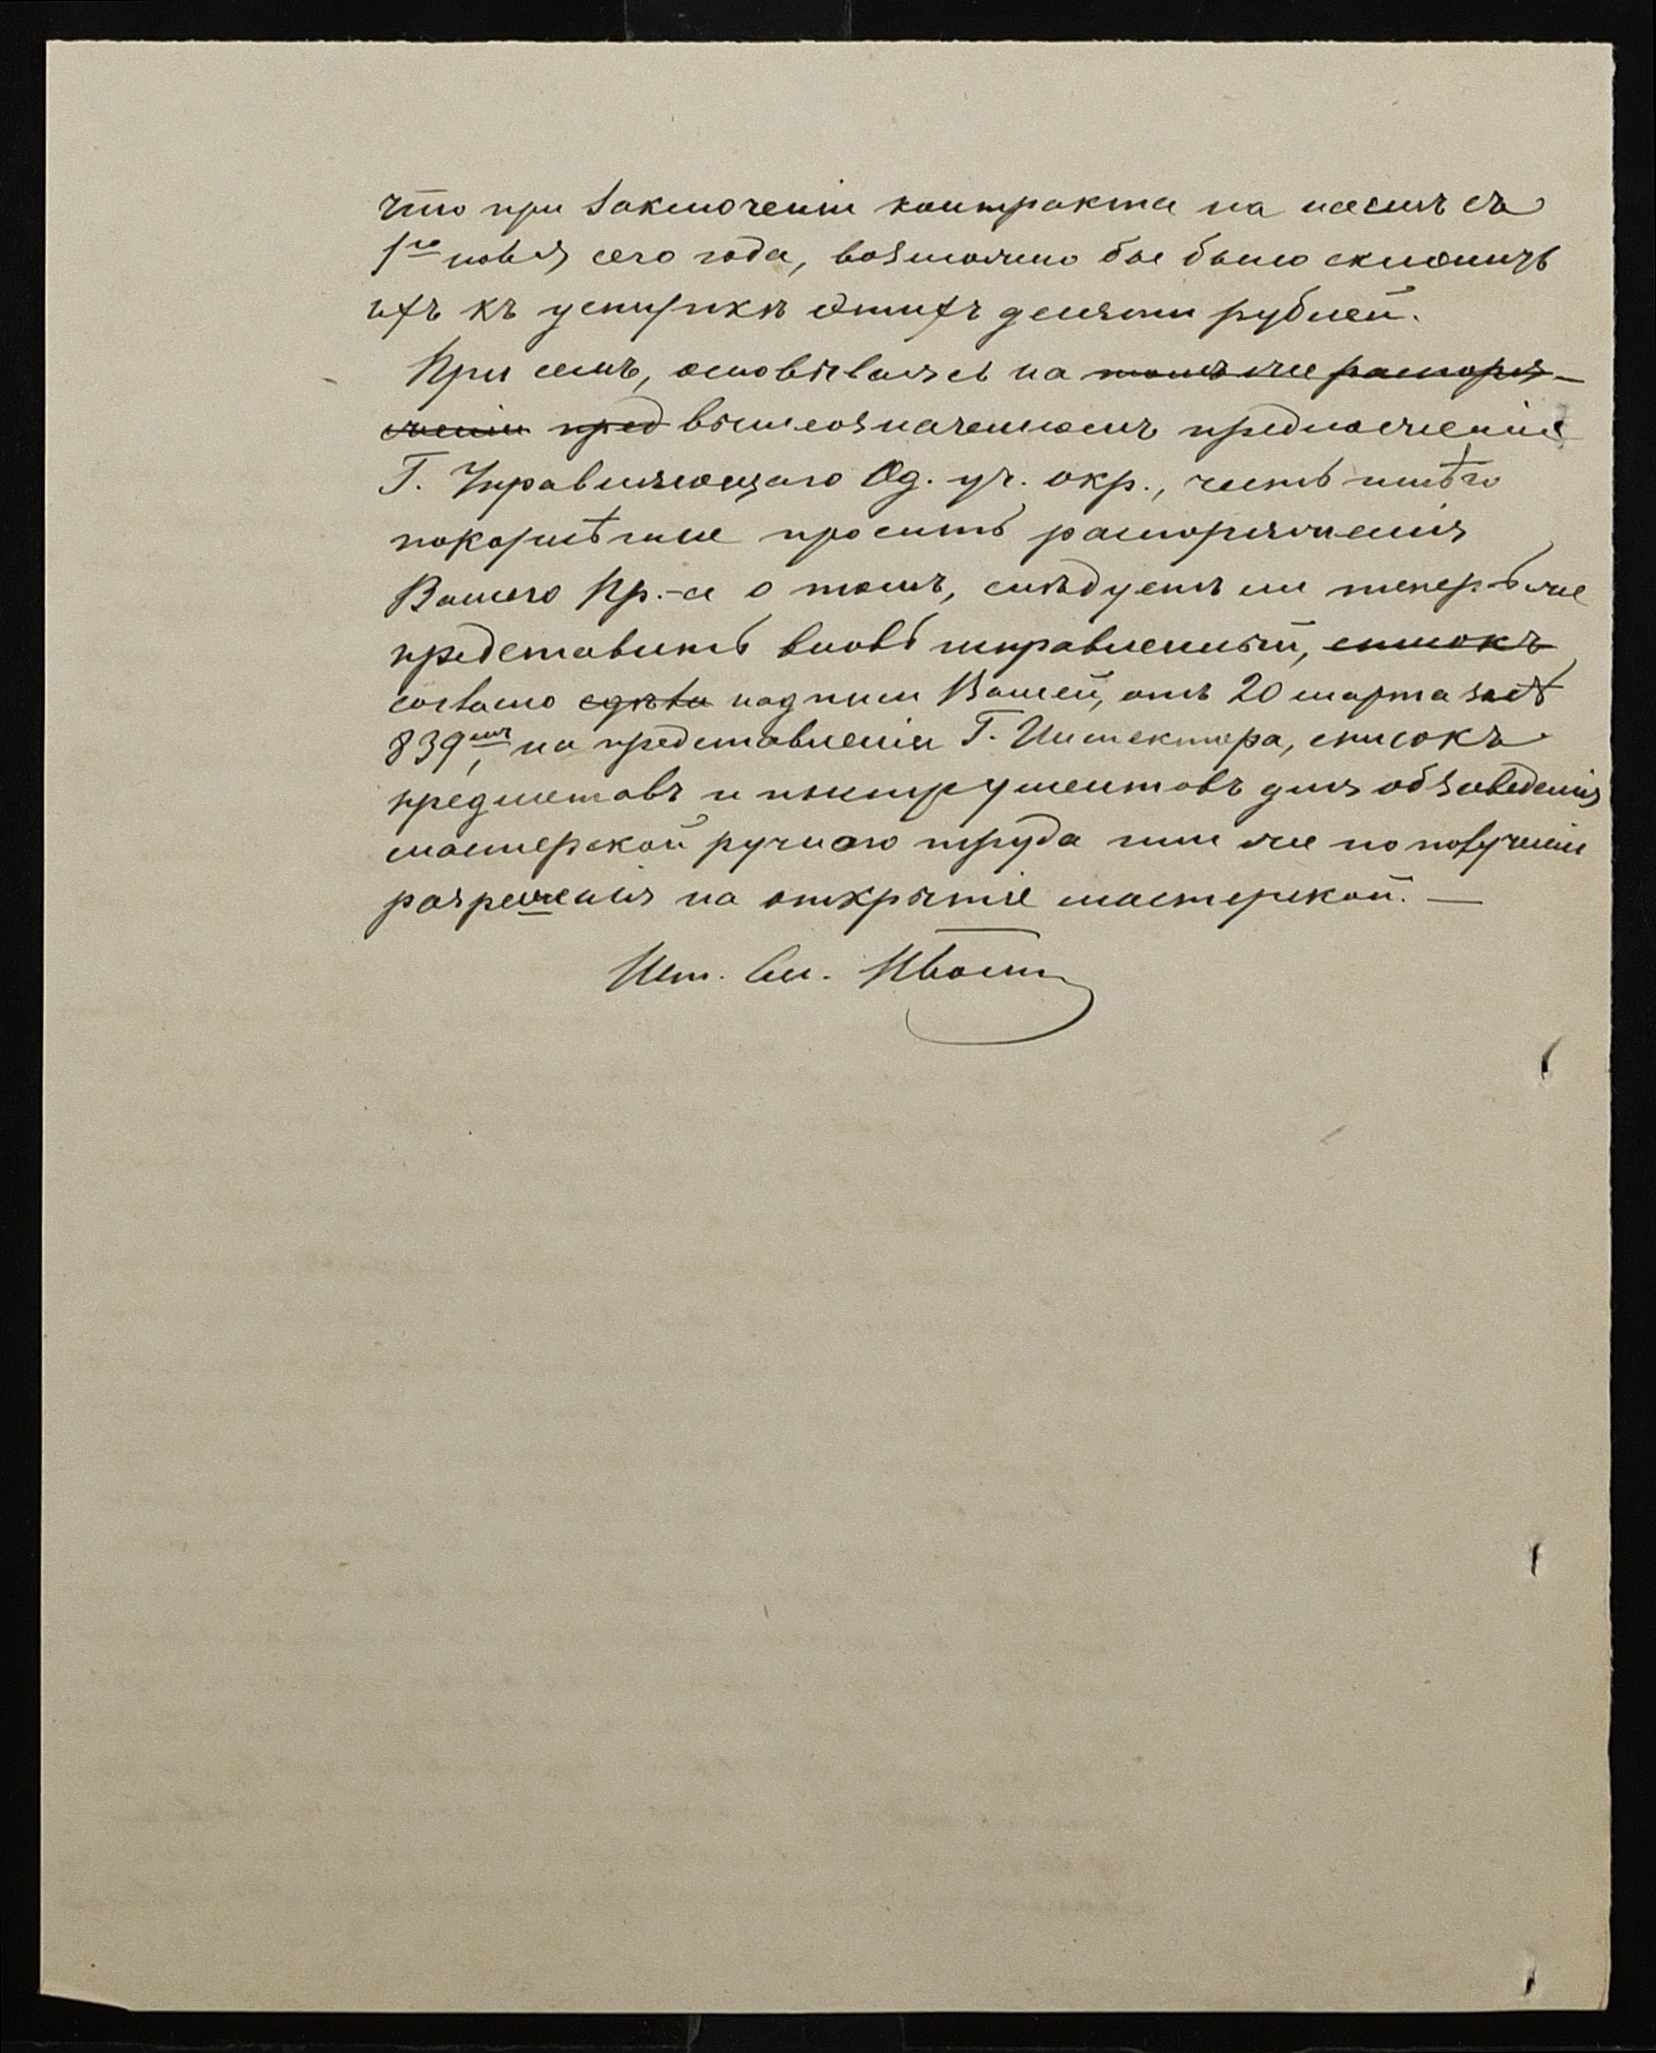 что при заключеніи контракта на наемъ съ
1го ноября сего года, возможно бы было склонить
ихъ къ уступкѣ этихъ десяти рублей.
При семъ, основываясь на томъ же распоря-
женіи пред вышеозначенномъ предложеніи
Г. Управляющаго Од. уч. окр., честь имѣю
покорнѣйше просить распоряженія
Вашего Пр.-а о томъ, слѣдуетъ ли теперь же
представить вновь исправленный, списокъ
согласно надписи Вашей, отъ 20 марта за №
839, на представленіи Г. Инспектора, списокъ
предметовъ и инструментовъ для обзаведенія
мастерской ручного труда или же по полученіи
разрешенія на открытіе мастерской. —